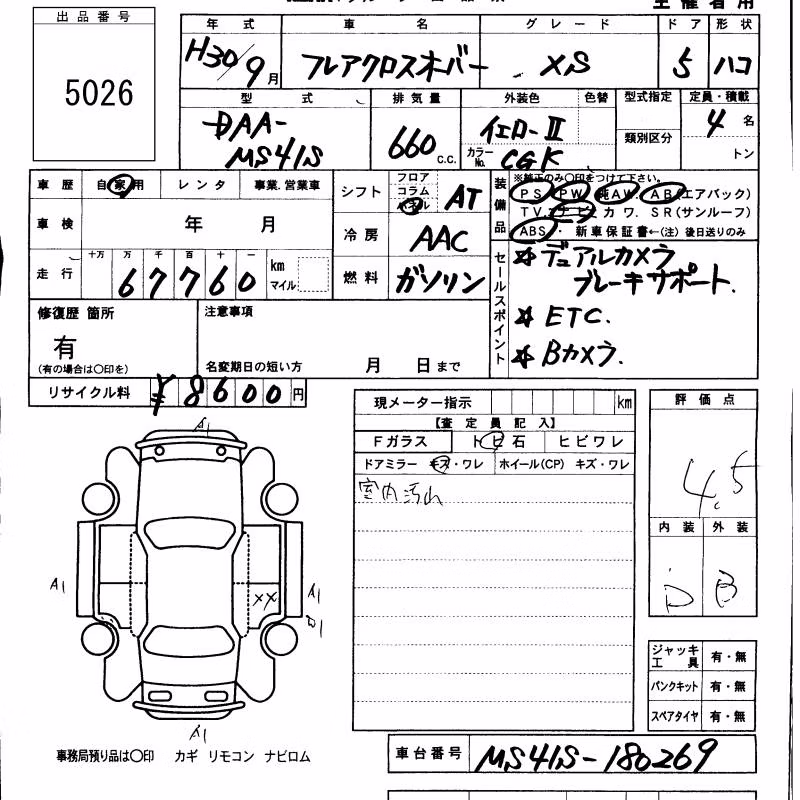 主催者用
出品番号
5026
年式 車名 グレード ドア 形状
H30/9月 フレアクロスオーバー XS 5 ハコ
型式 排気量 外装色 色替 型式指定 定員・積載
DAA-
MS41S
660 C.C.
イエローII
カラーNo. CGK
類別区分
4 名
トン
車歴 自家用 レンタ 事業.営業車
車検 年 月
走行 十万 万 千 百 十 一
67760 km マイル
シフト フロア コラム パネル AT
冷房 AAC
燃料 ガソリン
装備品
※純正のみ○印をつけて下さい。
PS PW 純AW. AB(エアバック)
TV. ナビ カワ. SR(サンルーフ)
ABS・ 新車保証書←(注)後日送りのみ
セールスポイント
☆ デュアルカメラ
ブレーキサポート.
☆ ETC.
☆ Bカメラ.
修復歴 箇所
有
(有の場合は○印を)
注意事項
名変期日の短い方 月 日まで
リサイクル料 ¥8600円
現メーター指示 km
【査定員記入】
Fガラス トビ石 ヒビワレ
ドアミラー キズ・ワレ ホイール(CP) キズ・ワレ
室内汚れ
評価点
4.5
内装 外装
D B
A1
A1
XX
A1
B1
A1
ジャッキ工具 有・無
パンクキット 有・無
スペアタイヤ 有・無
事務局預り品は○印 カギ リモコン ナビロム
車台番号 MS41S-180269